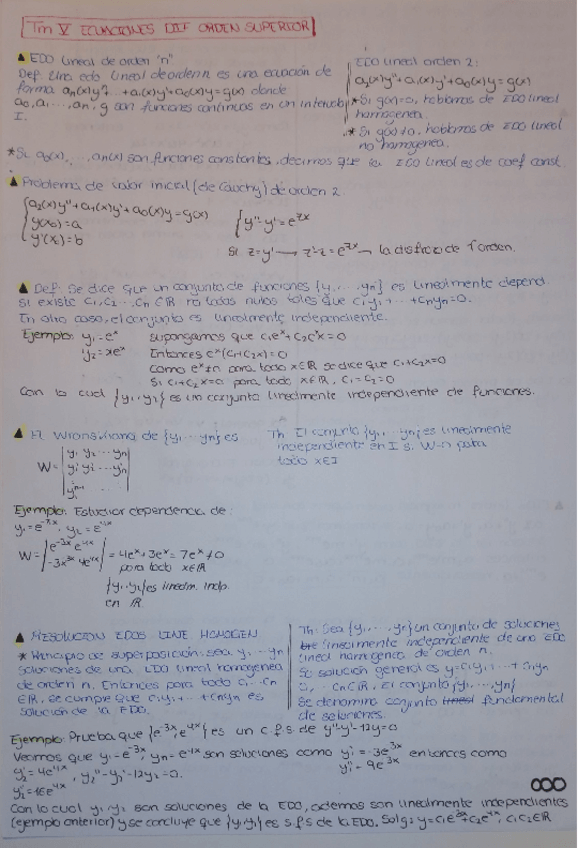 Tm V ECUACIONES DIF ORDEN SUPERIOR
▲ EDO lineal de orden "n"
Def. Una edo lineal de orden n es una ecuación de
forma an(x)y^n+...+a1(x)y'+a0(x)y=g(x) donde
a0, a1, ..., an, g son funciones continuas en un intervalo
I.
EDO lineal orden 2:
a2(x)y''+a1(x)y'+a0(x)y=g(x)
* Si g(x)=0, hablamos de EDO lineal
homogénea.
* Si g(x)≠0, hablamos de EDO lineal
no homogénea.
* Si a0(x), ..., an(x) son funciones constantes, decimos que la EDO lineal es de coef const.
▲ Problema de valor inicial (de Cauchy) de orden 2
a2(x)y''+a1(x)y'+a0(x)y=g(x)
y(x0)=a
y'(x0)=b
y''-y'=e^2x
Si z=y' → z'-z=e^2x → la disfraz de 1 orden.
▲ Def. Se dice que un conjunto de funciones {y1, ..., yn} es linealmente depend
si existe c1, c2 ... cn ∈ R no todos nulos tales que c1y1 ... +cnyn=0.
En otro caso, el conjunto es linealmente independiente.
Ejemplo: y1=e^x
y2=xe^x
supongamos que c1e^x+c2e^x x=0
Entonces e^x(c1+c2x)=0
como e^x≠0 para todo x∈R se dice que c1+c2x=0
Si c1+c2x=0 para todo x∈R, c1=c2=0
Con lo cual {y1, y2} es un conjunto linealmente independiente de funciones.
▲ El Wronskiano de {y1 ... yn} es
W= | y1 y2 ... yn |
| y1' y2' ... yn' |
| y1^n-1 |
Th. El conjunto {y1, ... yn} es linealmente
independiente en I si W≠0 para
todo x∈I
Ejemplo: Estudiar dependencia de:
y1=e^-3x, y2=e^4x
W= | e^-3x e^4x |
| -3x^3x 4e^4x | =4e^x+3e^x=7e^x≠0
para todo x∈R
{y1, y2} es linealm. indp.
en R.
▲ RESOLUCION EDOS LINE HOMOGEN
* Principio de superposición: sea y1 ... yn
soluciones de una EDO lineal homogénea
de orden n. Entonces para todo c1 ... cn
∈R, se cumple que c1y1 ... +cnyn es
solución de la EDO.
Th: Sea {y1, ..., yn} un conjunto de soluciones
linealmente independiente de una EDO
lineal homogénea de orden n.
Su solución general es y=c1y1 ... + cnyn
c1 ... cn∈R. El conjunto {y1, ..., yn}
se denomina conjunto fundamental
de soluciones.
Ejemplo: Prueba que {e^-3x, e^4x} es un c.f.s de y''-y'-12y=0
Veamos que y1=e^-3x, yn=e^4x son soluciones como y1'=-3e^-3x entonces como
y1''=9e^-3x
y2'=4e^4x, y2''-y2'-12y2=0.
y2''=16e^4x
Con lo cual y1, y2 son soluciones de la EDO, además son linealmente independientes
(ejemplo anterior) y se concluye que {y1, y2} es s.f.s de la EDO. Sol g: y=c1e^-3x+c2e^4x, c1, c2∈R